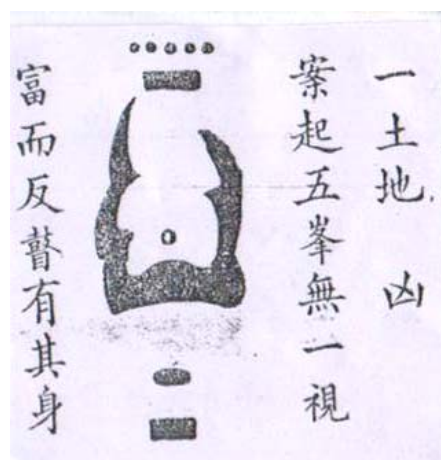 一土地 凶
案起五峯無一視
富而反瞽有其身